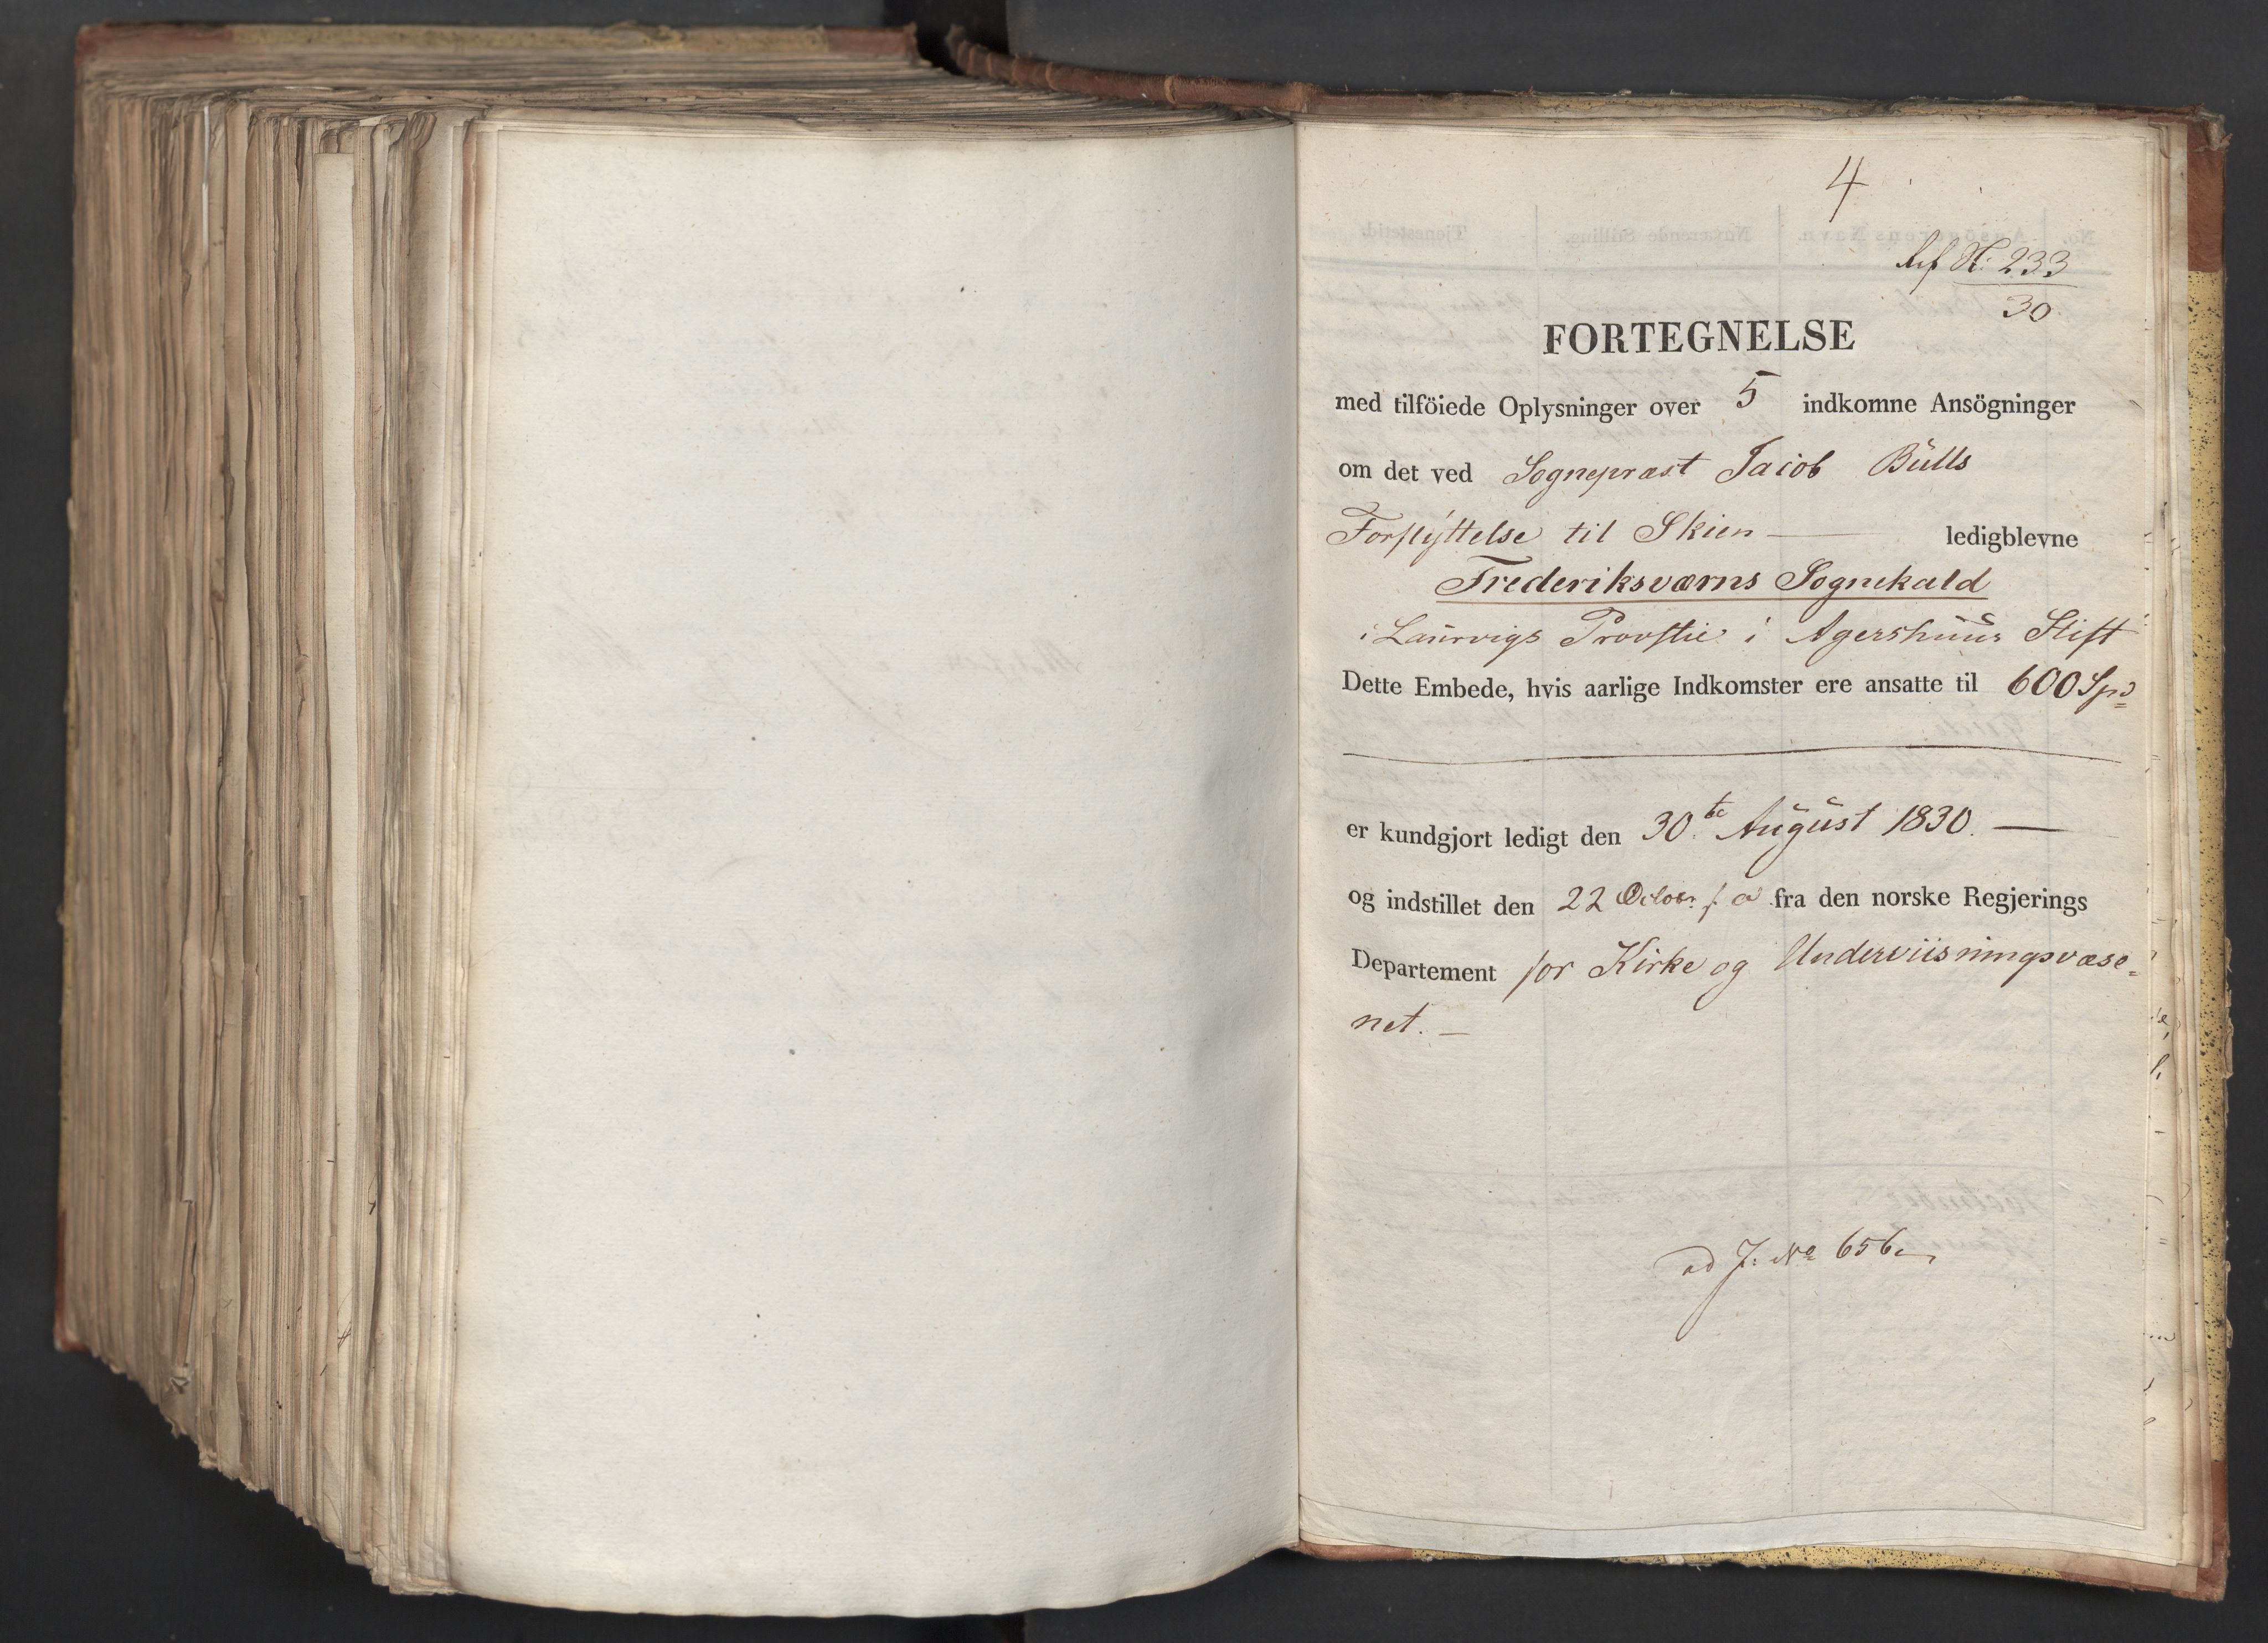 4
Ref N: 233
30
FORTEGNELSE
med tilföiede Oplysninger over 5 indkomne Ansögninger
om det ved Sognepræst Jacob Bulls
Forflyttelse til Skien — ledigblevne
Frederiksværns Sognekald
i Laurvigs Provstie i Agershuus Stift
Dette Embede, hvis aarlige Indkomster ere ansatte til 600 Spd
er kundgjort ledigt den 30te August 1830. —
og indstillet den 22 Octobr: s. a fra den norske Regjerings
Departement for Kirke og Underviisningsvæse=
net. —
ad J: No 656